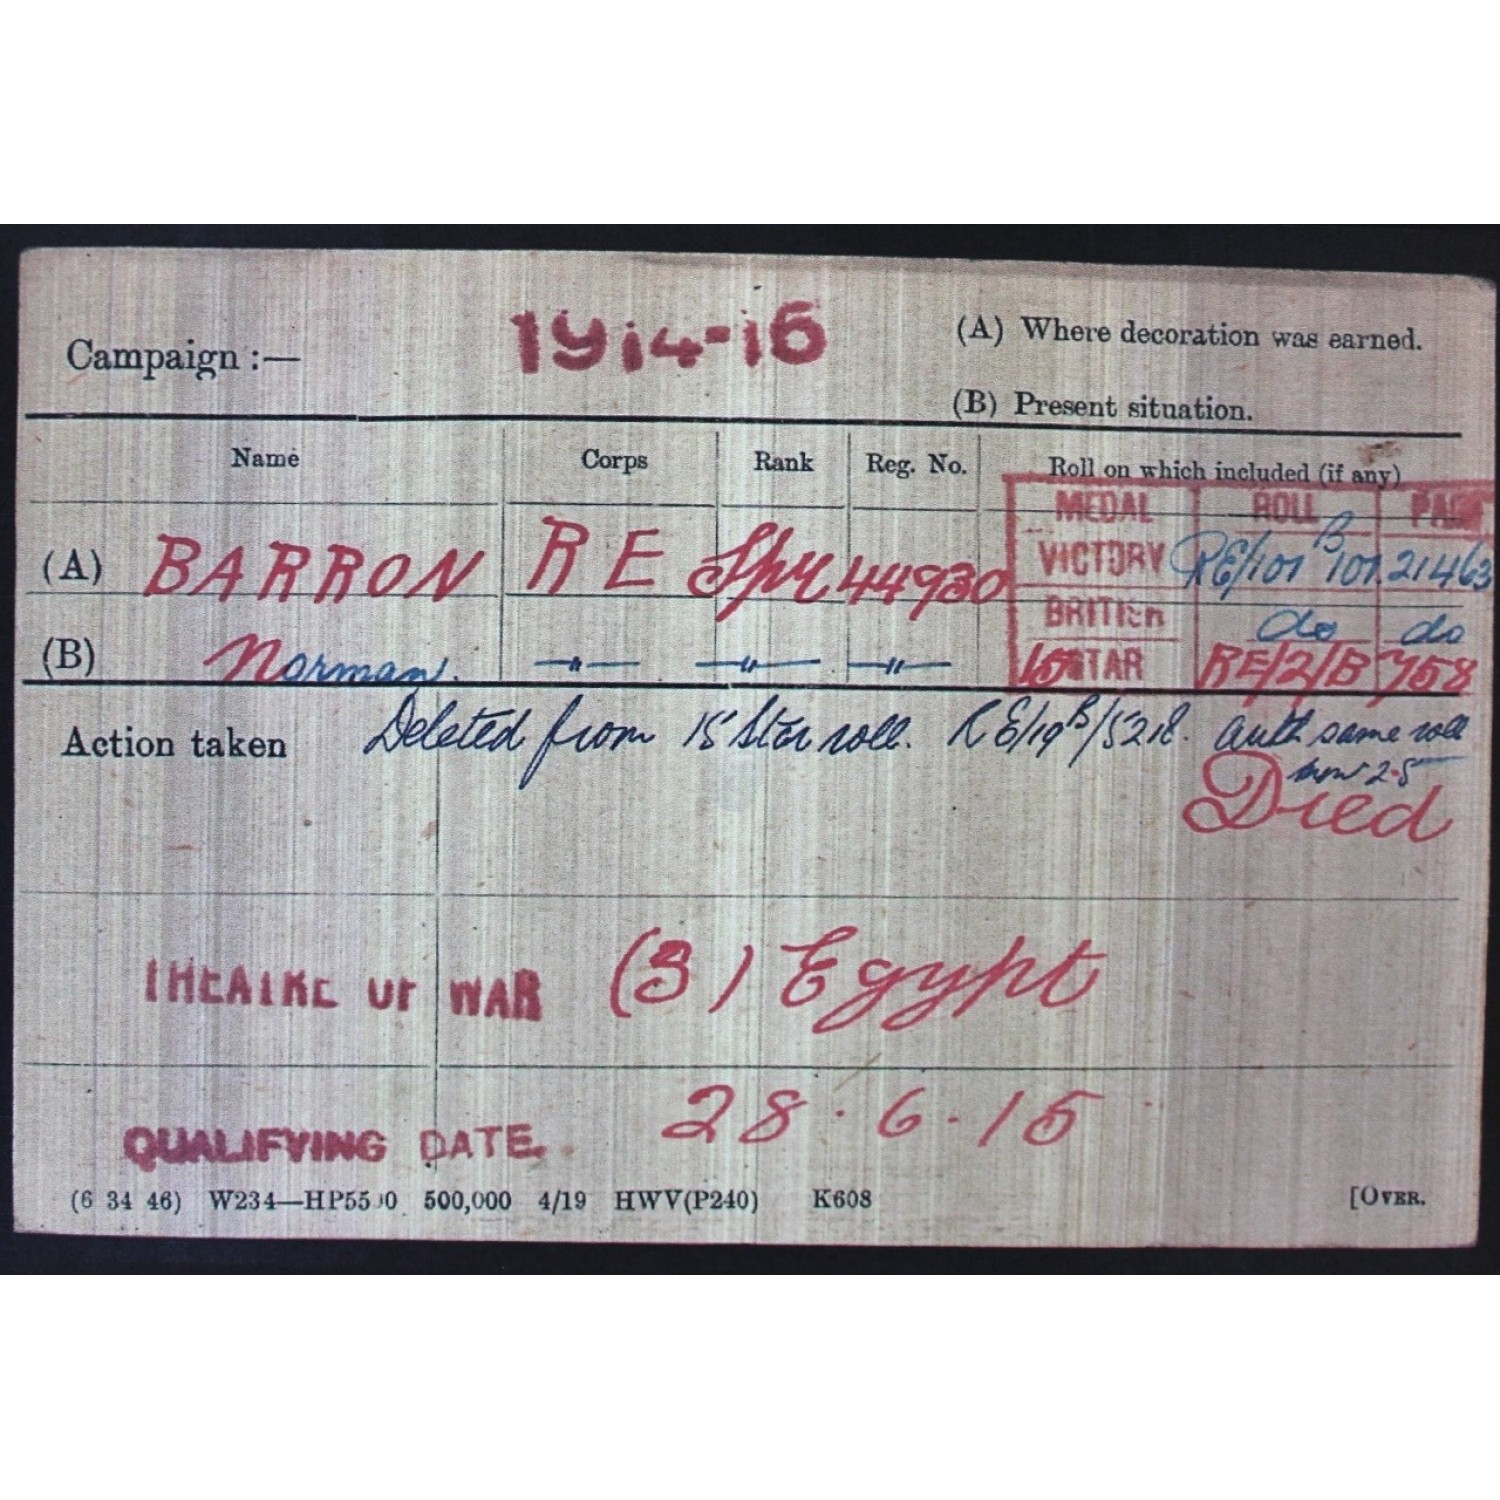 Campaign :— 1914-15 (A) Where decoration was earned.
(B) Present situation.
Name Corps Rank Reg. No. Roll on which included (if any)
MEDAL ROLL PAGE
(A) BARRON R E Spr 44930 VICTORY RE/101 B 101 21463
BRITISH do do
(B) Norman. —"— —"— —"— 15 STAR RE/2/B 758
Action taken Deleted from 15 Star roll. RE/19B/5218. auth same roll
2.5
Died
THEATRE OF WAR (3) Egypt
QUALIFYING DATE. 28.6.15
(6 34 46) W234—HP5500 500,000 4/19 HWV(P240) K608 [OVER.